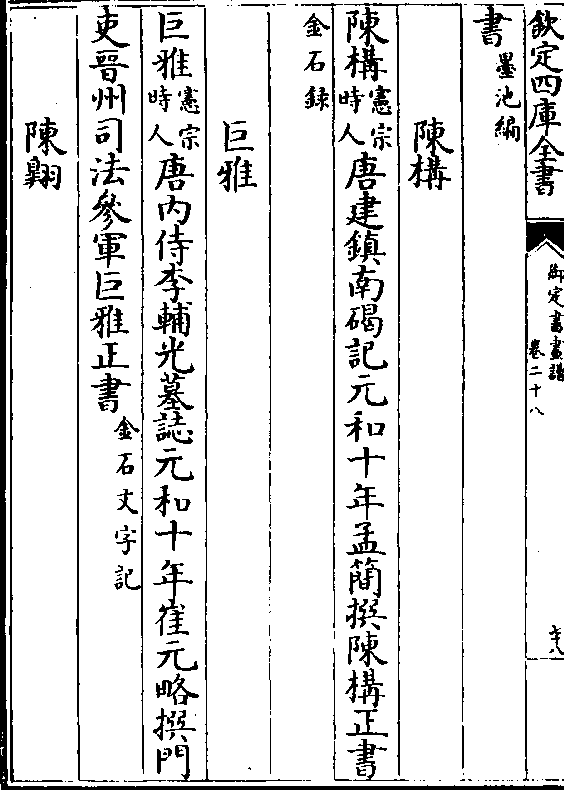 欽定四庫全書
御定書畫譜
卷二十八
六八
書墨池編
陳構
陳構憲宗時人唐建鎮南碣記元和十年孟簡撰陳構正書
金石録
巨雅
巨雅憲宗時人唐内侍李輔光墓誌元和十年崔元略撰門
吏晉州司法參軍巨雅正書金石文字記
陳翺